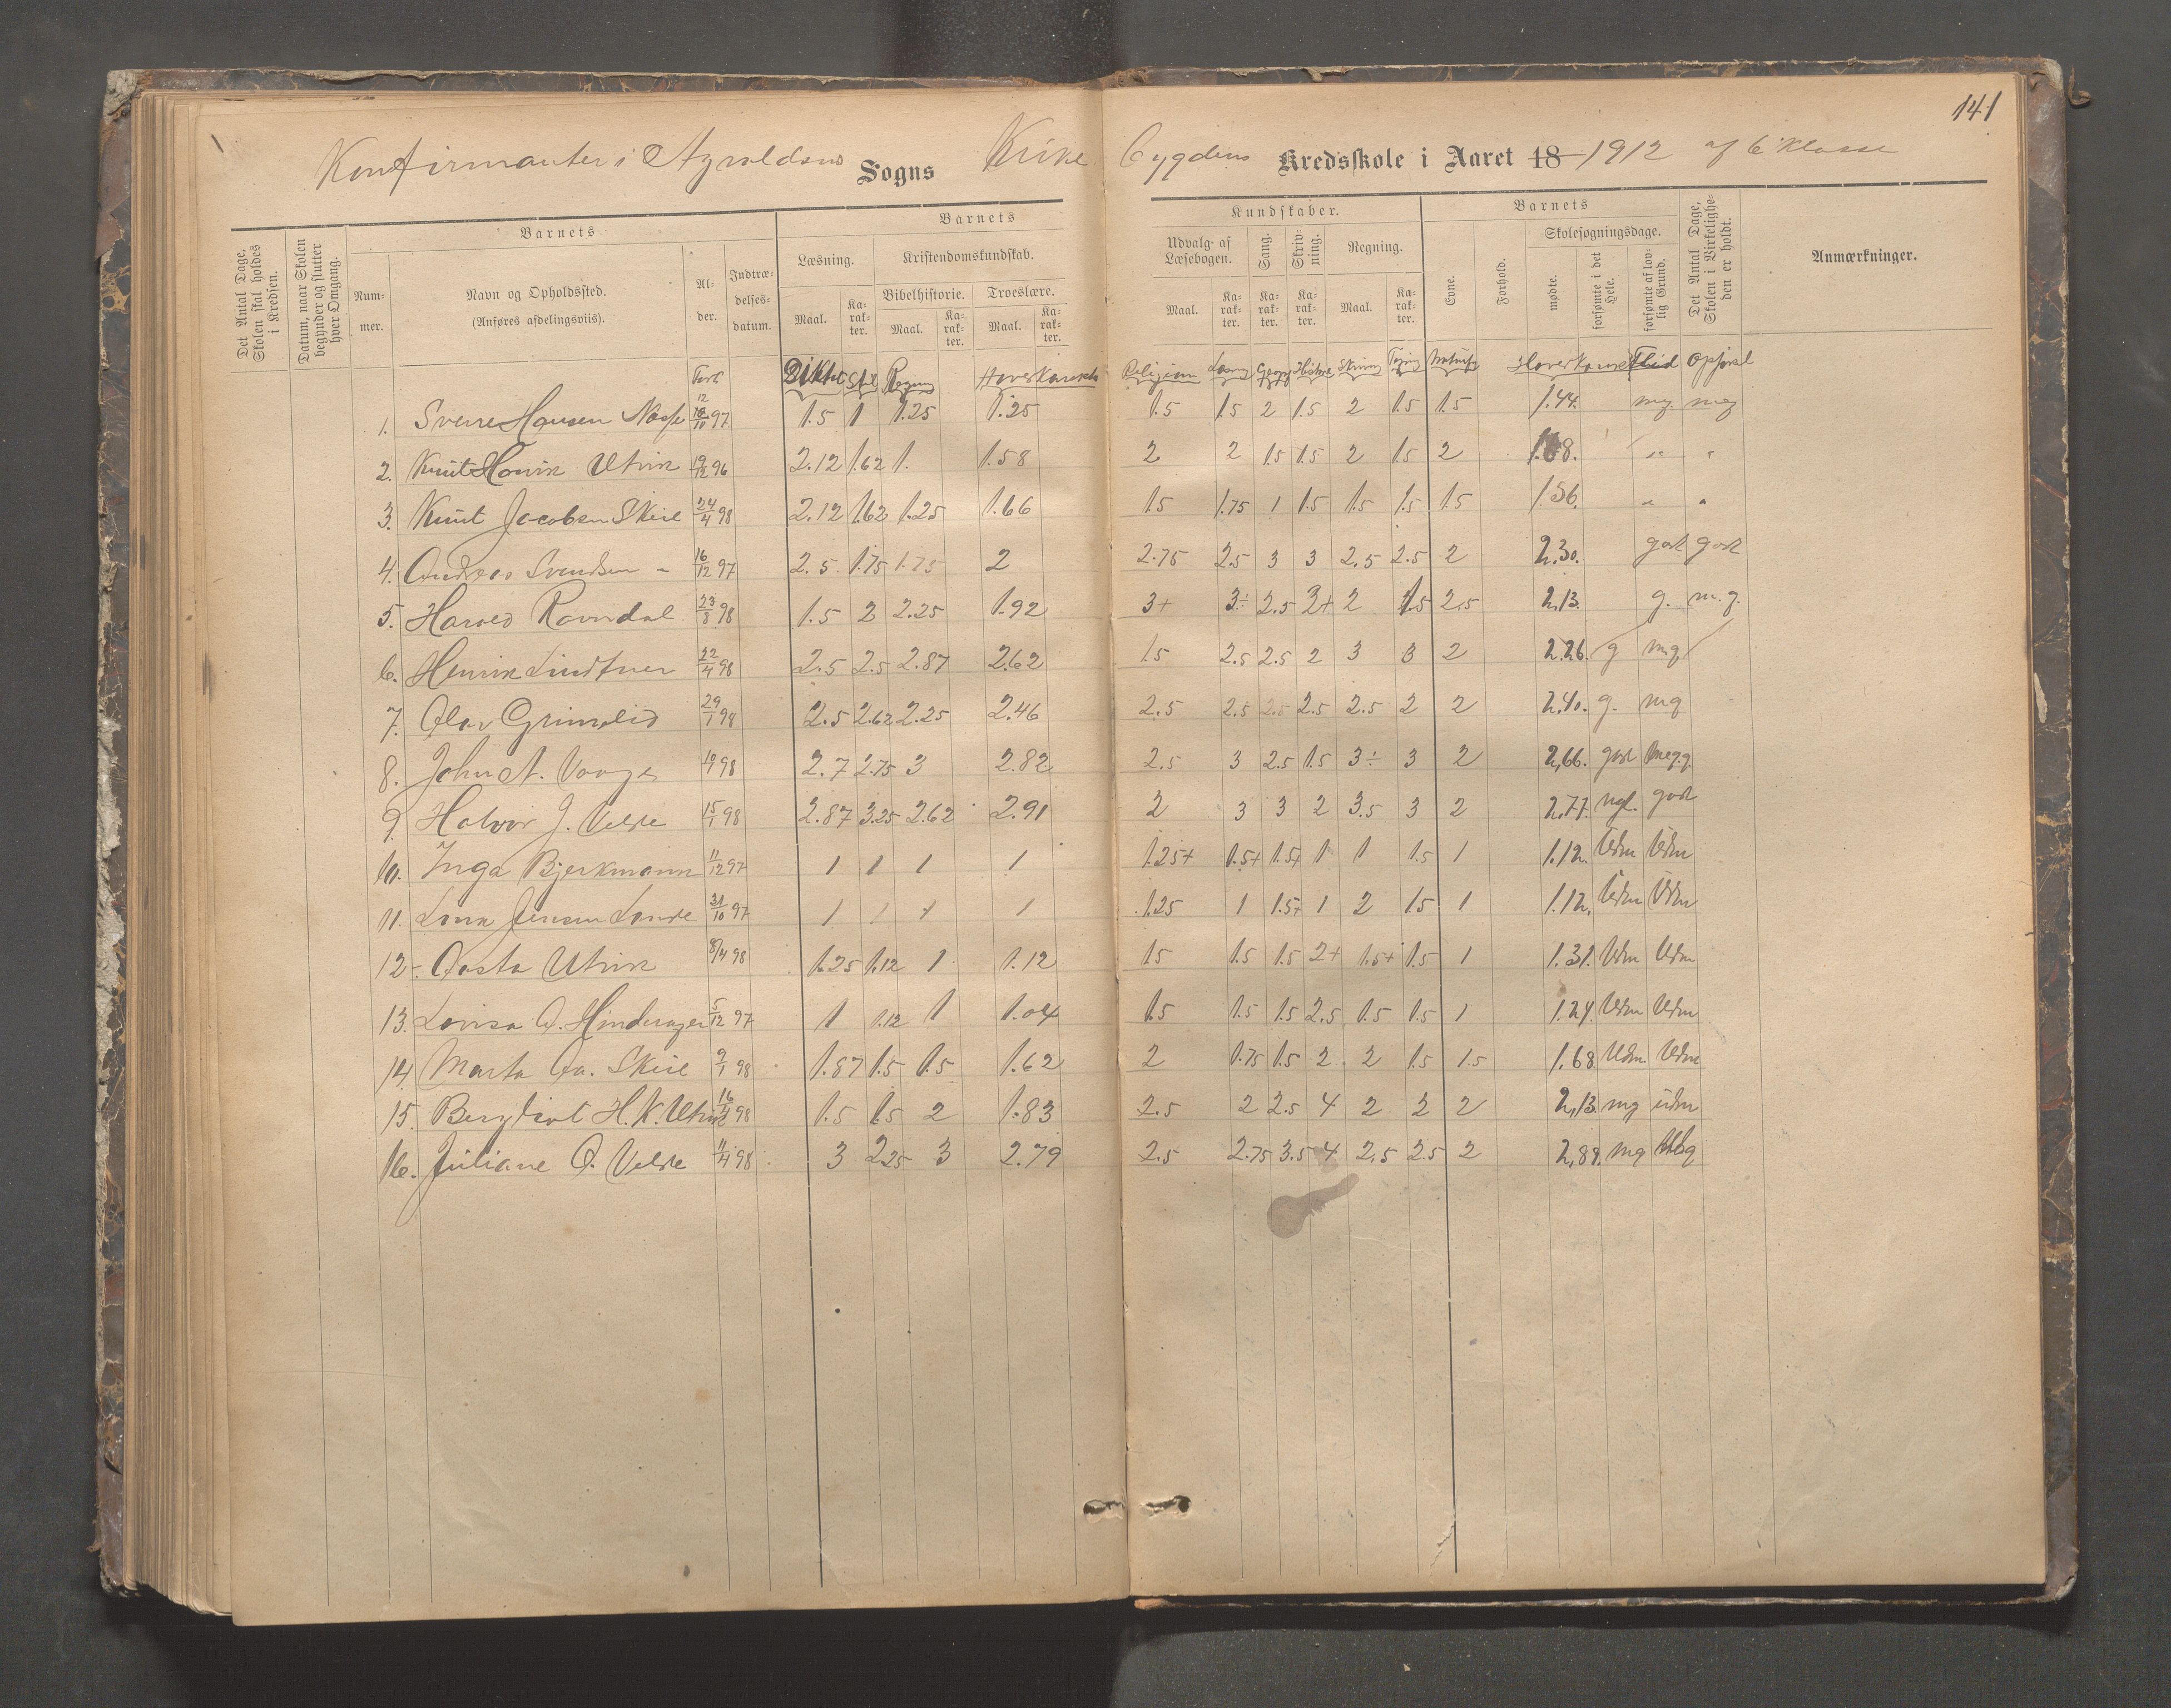 141
Konfirmanter i Sogns Kirke bygdens Kredsskole i Aaret 18 1912 af 6 Klasse
Det Antal Dage, Skolen skal holdes i Kredsen.
Datum, naar Skolen begynder og slutter hver Omgang.
Barnets
Nummer.
Navn og Opholdssted.
(Anføres afdelingsviis).
Alder.
Indtrædelsesdatum.
Barnets
Læsning.
Maal.
Karakter.
Kristendomskundskab.
Bibelhistorie.
Maal.
Karakter.
Troeslære.
Maal.
Karakter.
Kundskaber.
Udvalg af Læsebogen.
Maal.
Karakter.
Sang.
Karakter.
Skrivning.
Karakter.
Regning.
Maal.
Karakter.
Barnets
Evne.
Forhold.
Skolesøgningsdage.
mødte.
forsømte i det Hele.
forsømte af lovlig Grund.
Det Antal Dage, Skolen i Virkeligheden er holdt.
Anmærkninger.
Diktat Stil Regning Hoverkarakter Religion Historie Skrivning Hoverkarakter Flid Opførsel
1. Sverre Hansen 12/10 97 1.5 1 1.25 1.25 1.5 1.5 2 1.5 2 1.5 1.5 1.44. mg. meg
2. Knut Utvik 19/12 96 2.12 1.62 1. 1.58 2 2 1.5 1.5 2 1.5 2 1.68. " "
3. Knut Jacobsen Skeie 24/4 98 2.12 1.62 1.25 1.66 1.5 1.75 1 1.5 1.5 1.5 1.5 1.56. " "
4. Andreas Svendsen " 16/12 97 2.5 1.75 1.75 2 2.75 2.5 3 3 2.5 2.5 2 2.30. godt godt
5. Harald Ravndal 23/8 98 1.5 2 2.25 1.92 3+ 3÷ 2.5 3+ 2 1.5 2.5 2.13. g. m.g.
6. Henrik Lindtner 22/4 98 2.5 2.5 2.87 2.62 1.5 2.5 2.5 2 3 3 2 2.26. g mg
7. Olav Grimslid 29/1 98 2.5 2.62 2.25 2.46 2.5 2.5 2.5 2.5 2.5 2 2 2.40. g. mg
8. John A. Vaage 98 2.7 2.75 3 2.82 2.5 3 2.5 1.5 3÷ 3 2 2,66. godt meg.g.
9. Halvor J. Velde 15/1 98 2.87 3.25 2.62 2.91 2 3 3 2 3.5 3 2 2,77. ngl. godt
10. Inga Bjerkmann 11/12 97 1 1 1 1 1.25+ 1.5+ 1.5+ 1 1 1.5 1 1.12. Udm Udm
11. Jensen Lande 31/10 97 1 1 1 1 1.25 1 1.5+ 1 2 1.5 1 1.12. Udm Udm
12. Aasta Utvik 8/4 98 1.25 1.12 1 1.12 1.5 1.5 1.5 2+ 1.5+ 1.5 1 1.31. Udm Udm
13. Lovisa O. Hinderager 5/12 97 1 1.12 1 1.04 1.5 1.5 1.5 2.5 1.5 1.5 1 1.24. Udm Udm
14. Marta Aa. Skeie 9/1 98 1.87 1.5 1.5 1.62 2 1.75 1.5 2 2 1.5 1.5 1.68 Udm. Udm
15. Bergliot H.K. Utvik 16/4 98 1.5 1.5 2 1.83 2.5 2 2.5 4 2 2 2 2,13. mg udm
16. Juliane O. Velde 11/4 98 3 2.25 3 2.79 2.5 2.75 3.5 4 2,5 2.5 2 2,89. mg